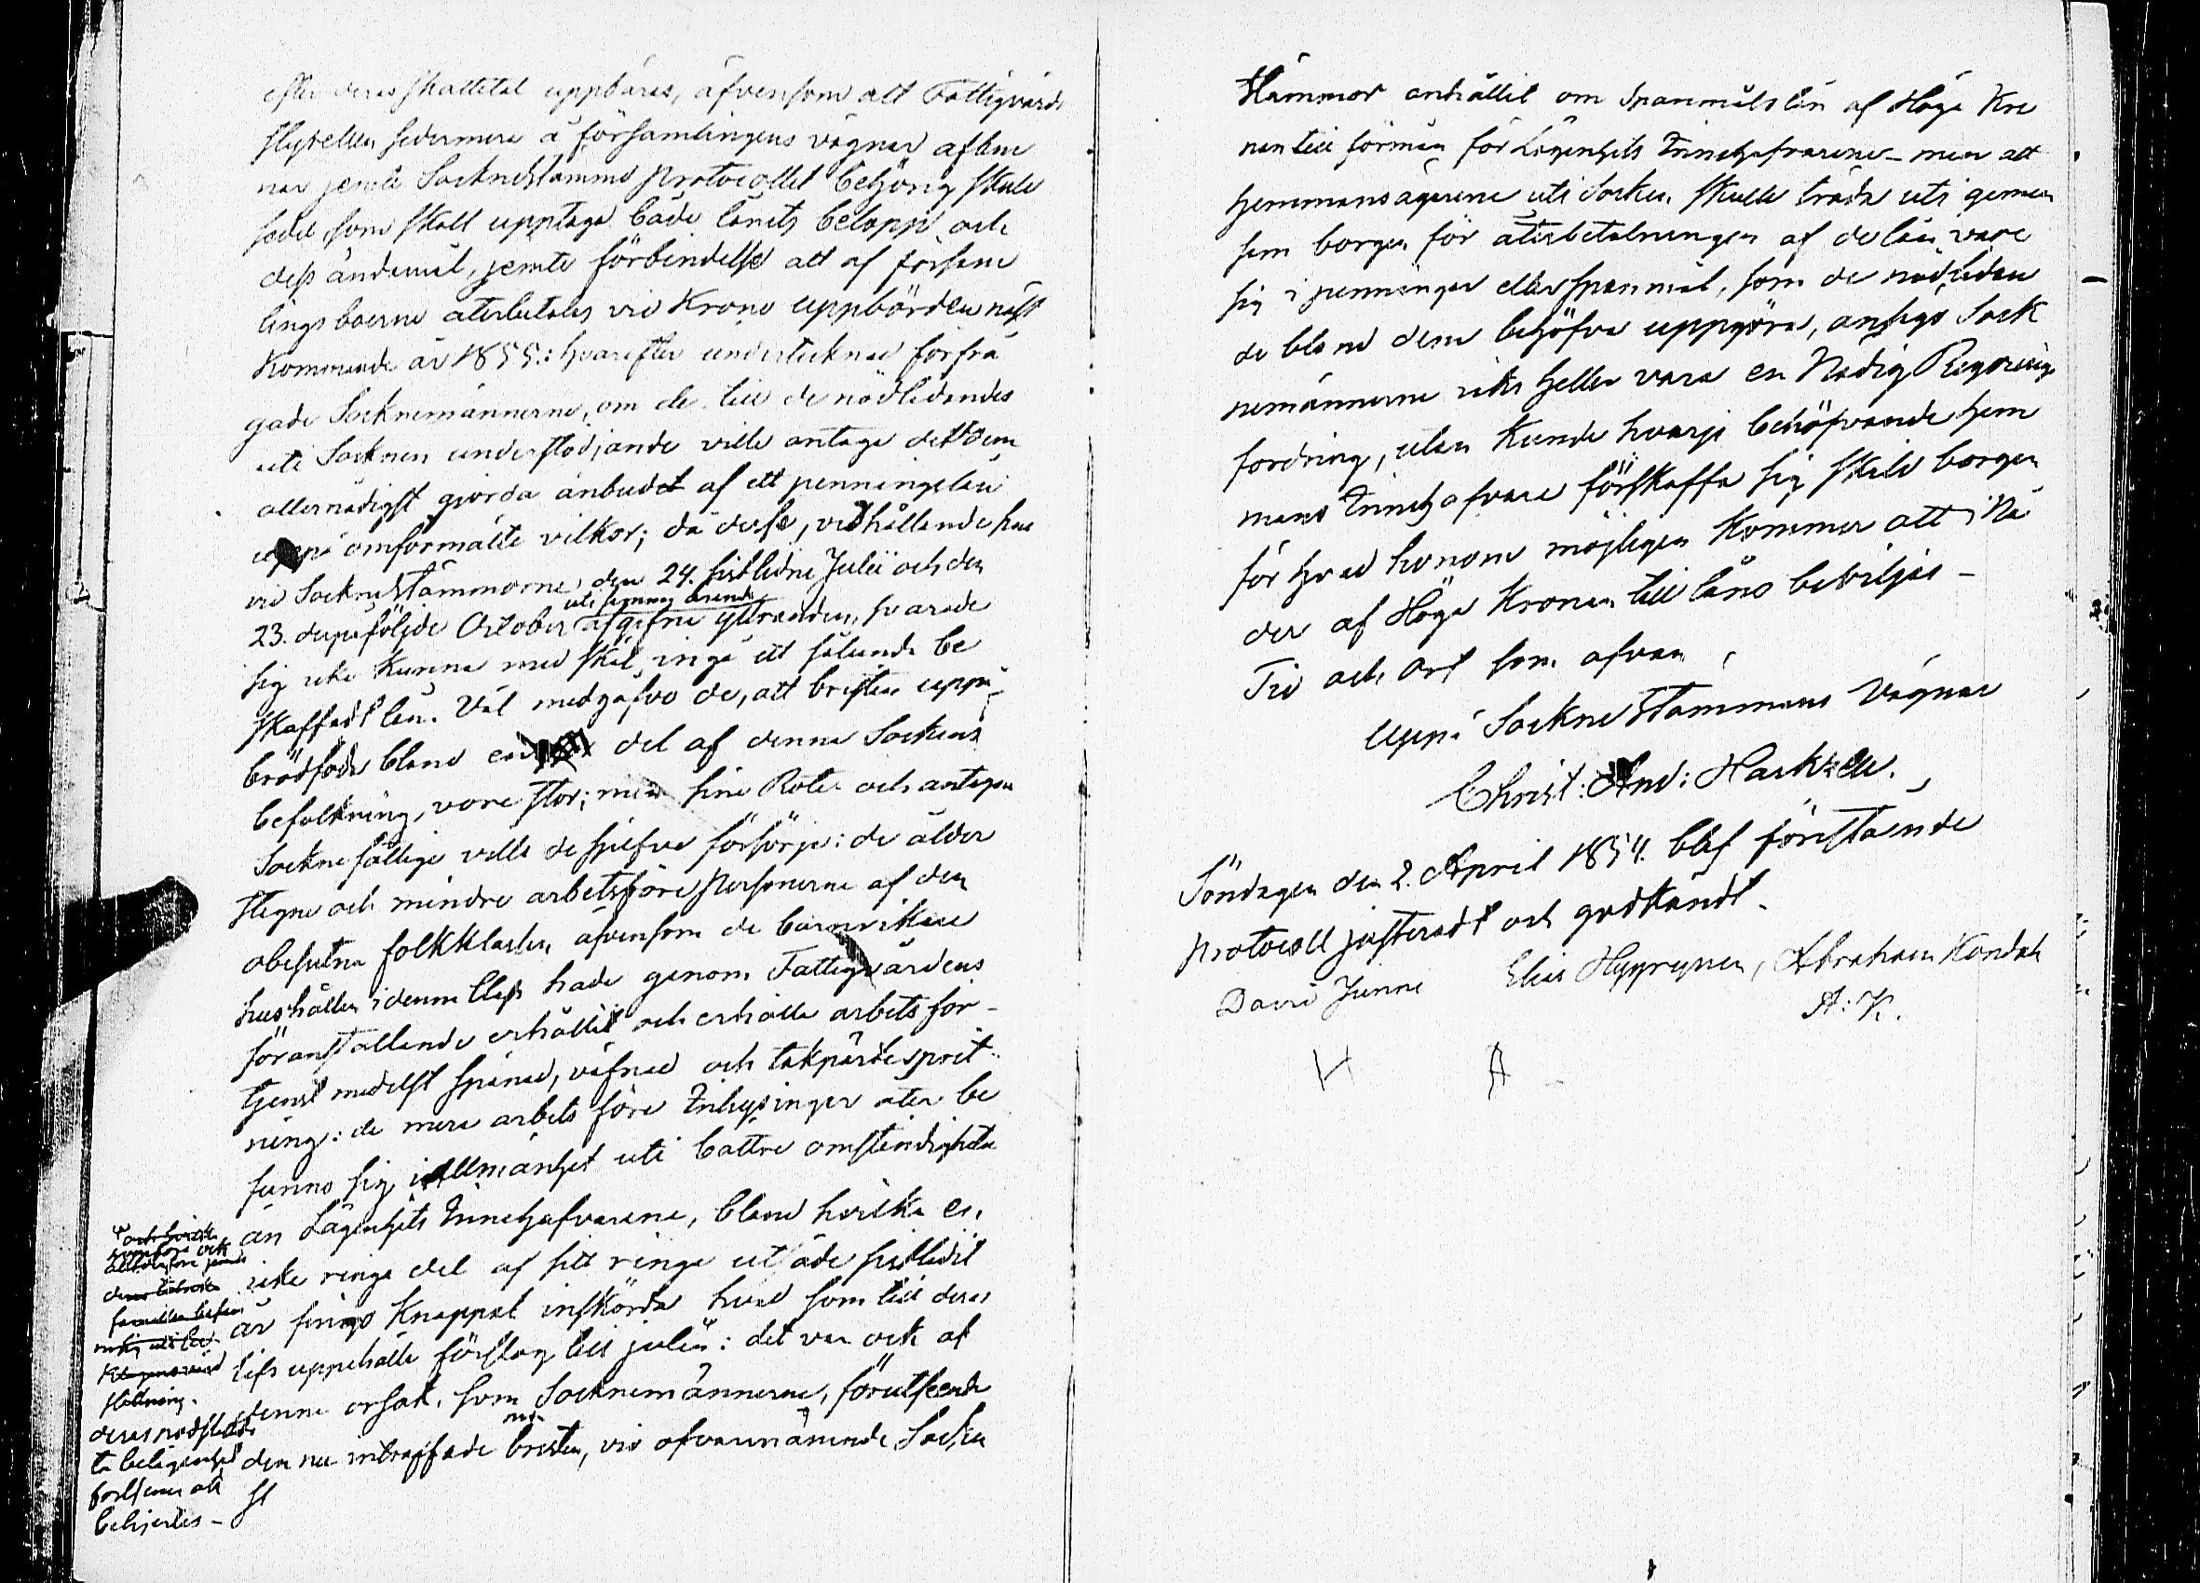 efter deras skattetal uppbäras, äfvensom att Fattigvårds
styrelsen sedermera å församlingens vägnar aflem
nar jemte Sockneståmmo Protocollet behörig skuld
sedel, som skall upptaga både lånets belopp och
dess ändamål, jemte förbindelse att af försam
lings boerne återbetalas vid Krono uppbörden näst
Kommande år 1855: hvarefter undertecknad förfrå
gade Socknemännerne, om de till de nödlidandes
uti Socknen understödjande ville antaga det dem
allernådigst gjorda anbudet af ett penningelån
uppå omförmälte vilkor; då desse, vidhållande sine
vid Sockneståmmorne den 24. sistledne Julii och den
23. derpåföljde October uti samma ärende afgifne yttranden, svarade
sig icke Kunna med skäl ingå ett sålunda be
skaffadt lån. Väl medgåfvo de, att bristen uppå
brödföda bland en del af denna Sockens
befolkning, vore stor; men sine Rote- och antagne
Socknefattige ville de sjelfve försörja: de ålder
stegne och mindre arbetsföre personerne af den
obesutna folkklassen, äfvensom de barnrikare
hushållen i denna Class hade genom Fattigvårdens
föranstaltande erhållit och erhålla arbetsför-
tjenst medelst spånad, väfnad och takpärtespret-
ning: de mera arbetsföre Inhysingar åter be
funno sig i allmänhet uti bättre omständigheter
än Lägenhets Innehafvarene, bland hvilka en
icke ringa del af sitt ringa utsäde sistledit
år fingo Knappast inskörda hvad som till deras
lifs uppehälle förslog till julen: det var ock af
denna orsak, som Socknemännerne, förutseende
den nu inträffade bristen, vid ofvannämnde Socken
st
ställning.
deras nödställ
ta belägenhet
förtjenar att
behjertas -
Stämmor anhållit om Spanmåls lån af Höga Kro
nan till förmån för Lägenhets Innehafvarene - men att
Hemmansägarene uti Socken skulle träda uti gemen
sam borgen för återbetalningen af de lån, vare
sig i penningar eller spanmål, som de nödlidan
de bland dem behöfva uppgöra, ansågo Sock
nemännerne icke heller vara en Nådig Regerings
fordring, utan Kunde hvarje behöfvande Hem
mans Innehafvare förskaffa sig skild borgen
för hvad honom möjligen Kommer att i Nå
der af Höga Kronan till låns beviljas -
Tid och Ort som ofvan
Uppå Sockneståmmans Vägnar
Christ: And: Harkzell.
Söndagen den 2. April 1854. blef förestående
Protocoll justeradt och godkändt.
David Junne Elias Hyyrynen, Abraham Kondak
A: K.
H A